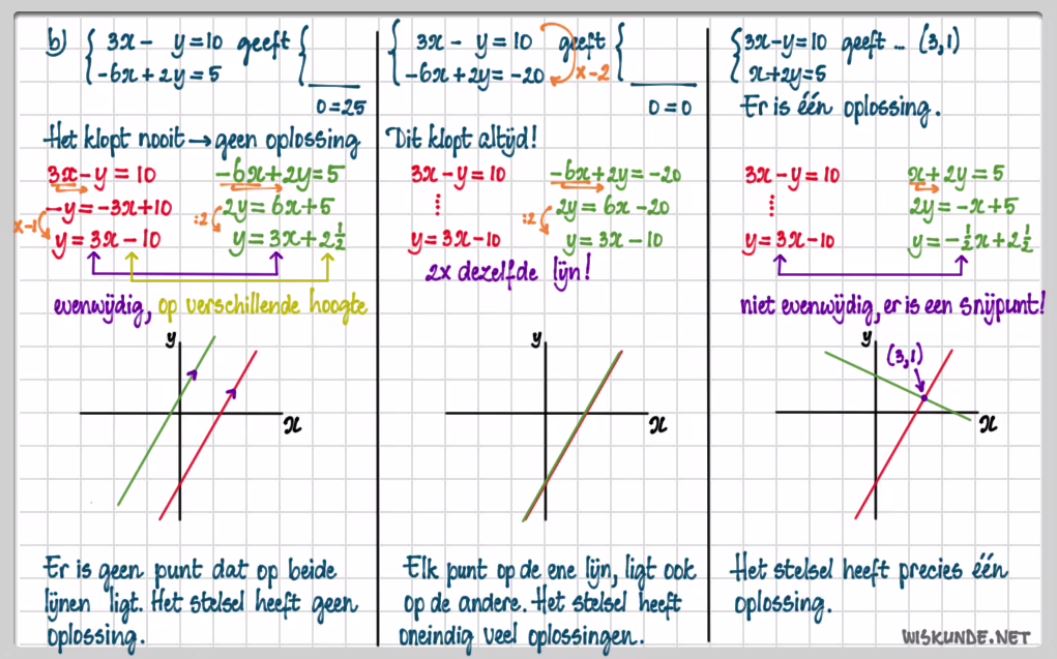 b) { 3x - y = 10 geeft {
-6x + 2y = 5
0 = 25
Het klopt nooit → geen oplossing
3x - y = 10
-y = -3x + 10
x-1
y = 3x - 10
-6x + 2y = 5
2y = 6x + 5
:2
y = 3x + 2½
evenwijdig, op verschillende hoogte
y
x
Er is geen punt dat op beide
lijnen ligt. Het stelsel heeft geen
oplossing.
{ 3x - y = 10 geeft {
-6x + 2y = -20
x-2
0 = 0
Dit klopt altijd!
3x - y = 10
⋮
y = 3x - 10
-6x + 2y = -20
2y = 6x - 20
:2
y = 3x - 10
2x dezelfde lijn!
y
x
Elk punt op de ene lijn, ligt ook
op de andere. Het stelsel heeft
oneindig veel oplossingen.
{ 3x - y = 10 geeft ... (3,1)
x + 2y = 5
Er is één oplossing.
3x - y = 10
⋮
y = 3x - 10
x + 2y = 5
2y = -x + 5
y = -½x + 2½
niet evenwijdig, er is een snijpunt!
y
(3,1)
x
Het stelsel heeft precies één
oplossing.
WISKUNDE.NET